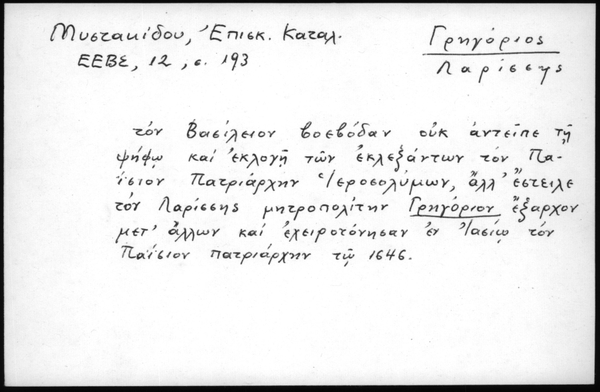 Μυστακίδου, Ἐπισκ. Καταλ.
ΕΕΒΣ, 12, σ. 193
Γρηγόριος
Λαρίσσης
τόν Βασίλειον βοεβόδαν οὐκ ἀντεῖπε τῇ
ψήφῳ καί ἐκλογῇ τῶν ἐκλεξάντων τόν Πα-
ΐσιον Πατριάρχην Ἱεροσολύμων, ἀλλ' ἔστειλε
τόν Λαρίσσης μητροπολίτην Γρηγόριον ἔξαρχον
μετ' ἄλλων καί ἐχειροτόνησαν ἐν Ἰασίῳ τόν
Παΐσιον πατριάρχην τῷ 1646.